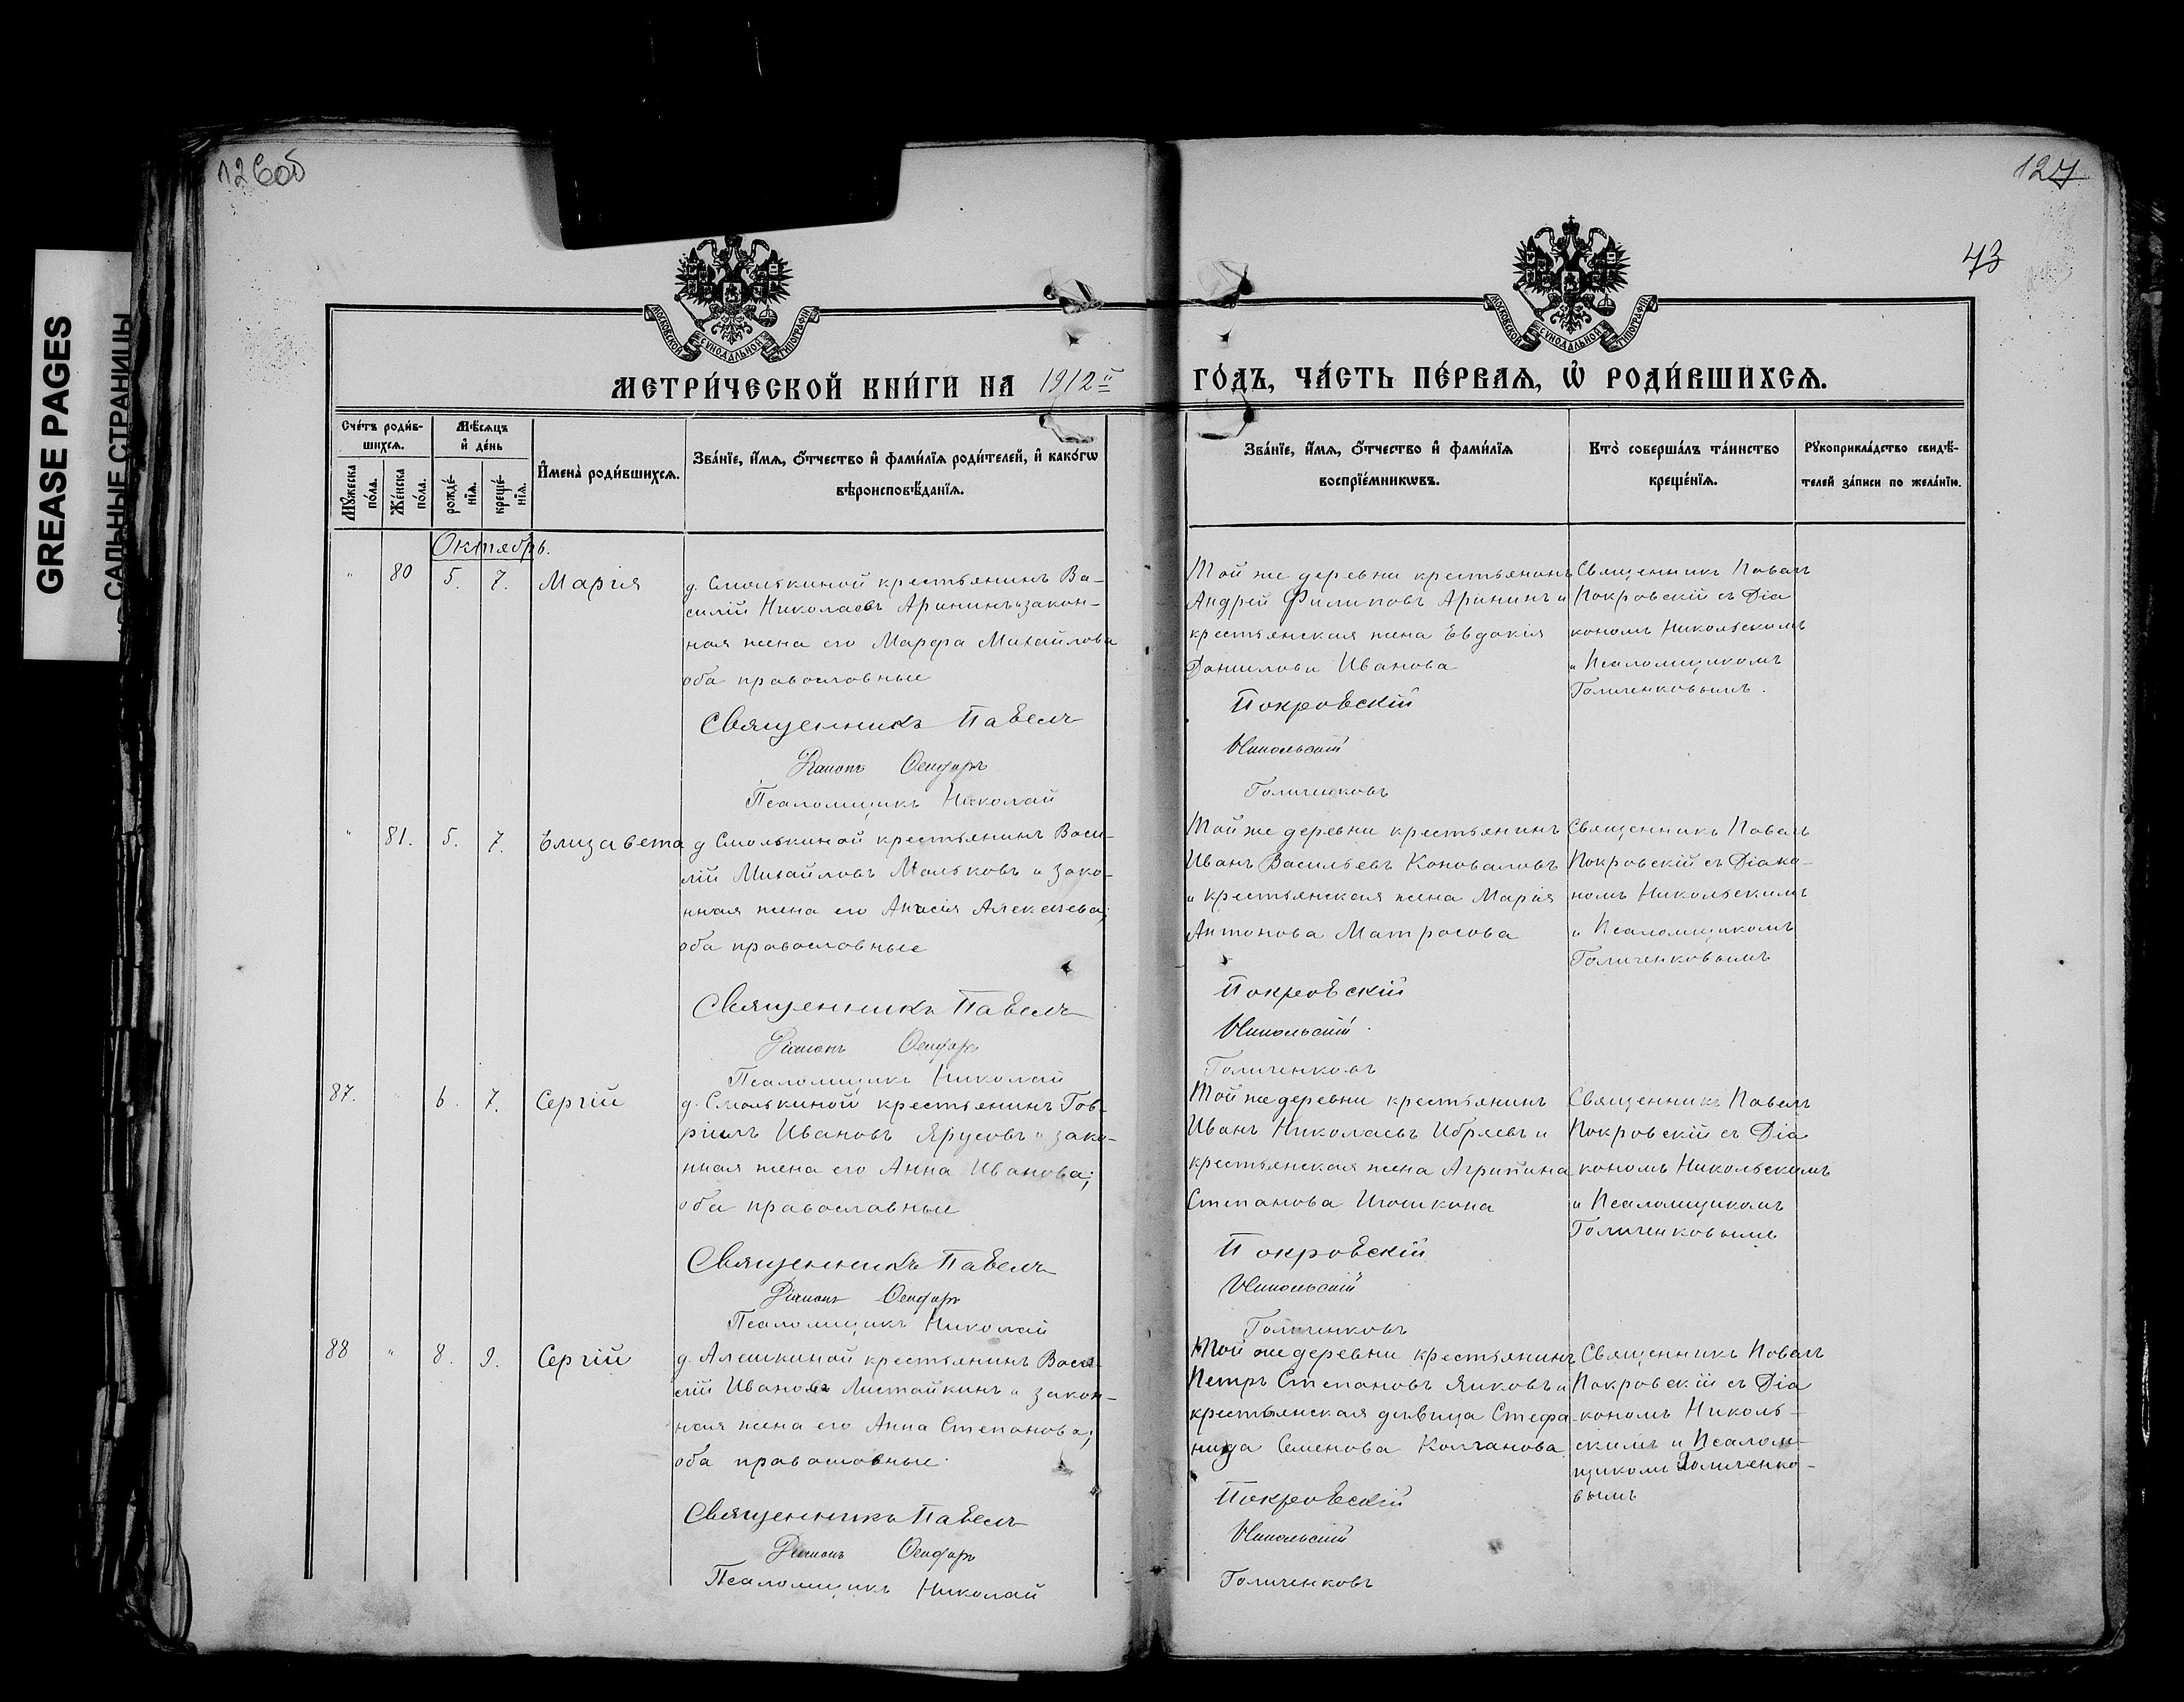 GREASE PAGES
САЛЬНЫЕ СТРАНИЦЫ
126об
127
43
МОСКОВСКОЙ СУНОДАЛЬНОЙ ТИПОГРАФІИ
МОСКОВСКОЙ СУНОДАЛЬНОЙ ТИПОГРАФІИ
МЕТРИ́ЧЕСКОЙ КНИ́ГИ НА 1912й
ГО́ДЪ, ЧА́СТЬ ПЕ́РВАѦ, Ѽ РОДИ́ВШИХСѦ.
Сче́тъ роди́в-
шихсѧ.
Мѣ́сѧцъ
и҆ де́нь
Мꙋ́жеска по́ла.
Же́нска по́ла.
рожде́-
нїѧ.
креще́-
нїѧ.
И҆мена̀ роди́вшихсѧ.
Зва́нїе, и҆́мѧ, ѻ҆́тчество и҆ фами́лїѧ роди́телей, и҆ како́гѡ
вѣроисповѣ́данїѧ.
Зва́нїе, и҆́мѧ, ѻ҆́тчество и҆ фами́лїѧ
воспрїе́мникѡвъ.
Кто̀ соверша́лъ та́инство
креще́нїѧ.
Рꙋкоприкла́дство свидѣ́-
телей за́писи по жела́нїю.
Октябрь.
" 80 5. 7. Марія
д. Смолькиной крестьянинъ Ва-
силій Николаевъ Арининъ и закон-
ная жена его Марфа Михайлова
оба православные
Священникъ Павелъ
Діаконъ
Псаломщикъ Николай
Той же деревни крестьянинъ
Андрей Филиповъ Арининъ и
крестьянская жена Евдокія
Данилова Иванова
Покровскій
Никольскій
Голиченковъ
Священникъ Павелъ
Покровскій съ Діа
кономъ Никольскимъ
и Псаломщикомъ
Голиченковымъ.
" 81. 5. 7. Елизавета
д Смолькиной крестьянинъ Васи-
лій Михайловъ Мольковъ и зако-
нная жена его Алексеева;
оба православные
Священникъ Павелъ
Діаконъ
Псаломщикъ Николай
Той же деревни крестьянинъ
Иванъ Васильевъ Коноваловъ
и крестьянская жена Марія
Антонова Матросова
Покровскій
Никольскій
Голиченковъ
Священникъ Павелъ
Покровскій съ Діако-
номъ Никольскимъ
и Псаломщикомъ
Голиченковымъ
87. " 6. 7. Сергій
д. Смолькиной крестьянинъ Гав-
ріилъ Ивановъ Ярусовъ и зако-
нная жена его Анна Иванова;
оба православные
Священникъ Павелъ
Діаконъ
Псаломщикъ Николай
Той же деревни крестьянинъ
Иванъ Николаевъ Ибряевъ и
крестьянская жена Агрипина
Степанова Игошкина
Покровскій
Никольскій
Голиченковъ
Священникъ Павелъ
Покровскій съ Діа
кономъ Никольскимъ
и Псаломщикомъ
Голиченковымъ
88 " 8. 9. Сергій
д. Алешкиной крестьянинъ Васи-
лій Ивановъ Листайкинъ и закон-
ная жена его Анна Степанова;
оба православные.
Священникъ Павелъ
Діаконъ
Псаломщикъ Николай
Той же деревни крестьянинъ
Петръ Степановъ Янковъ и
крестьянская дѣвица Стефа
нида Семенова Колчанова
Покровскій
Никольскій
Голиченковъ
Священникъ Павелъ
Покровскій съ Діа
кономъ Николь-
скимъ и Псалом-
щикомъ Голиченко-
вымъ